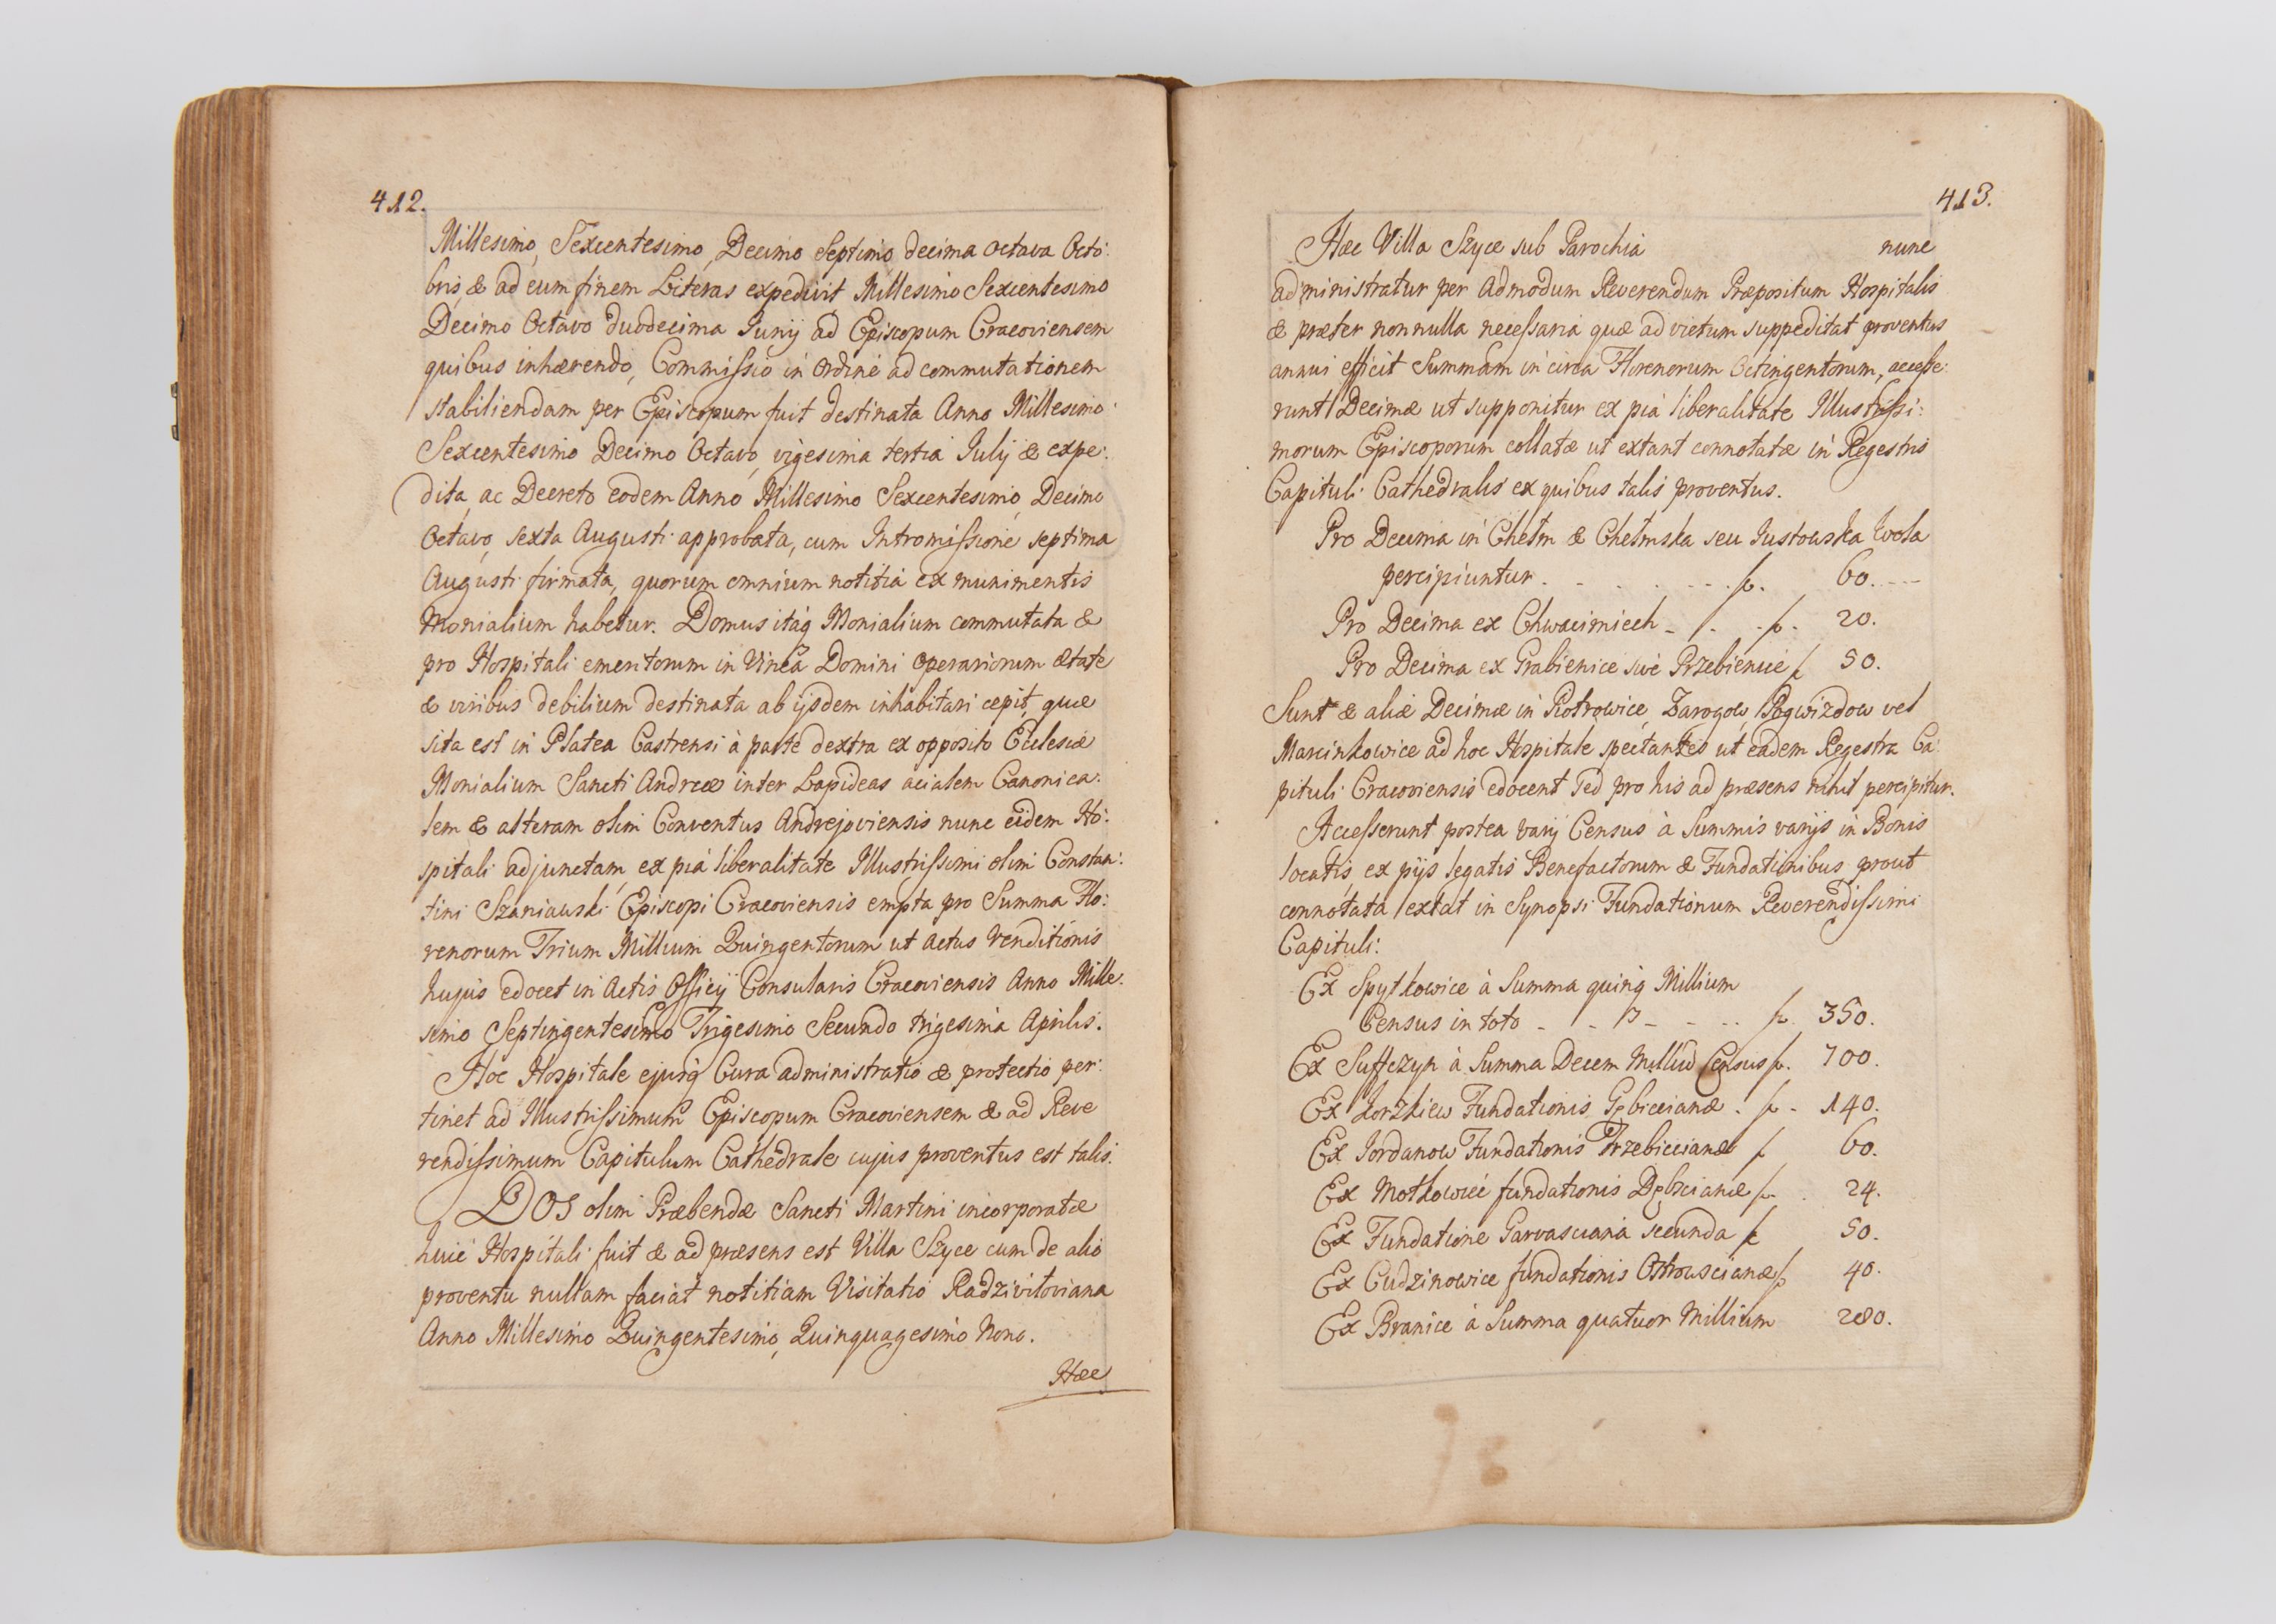 412.
Millesimo, Sexcentesimo, Decimo Septimo, decima octava Octo:
bris, & ad eum finem Literas expedivit Millesimo Sexcentesimo
Decimo Octavo duodecima Junij ad Episcopum Cracoviensem
quibus inhærendo, Commissio in ordine ad commutationem
stabiliendam per Episcopum fuit destinata Anno Millesimo
Sexcentesimo Decimo Octavo, vigesima tertia Julij & expe:
dita, ac Decreto eodem Anno Millesimo Sexcentesimo, Decimo
Octavo, sexta Augusti approbata, cum Intromissione septima
Augusti firmata, quorum omnium notitia ex munimentis
Monialium habetur. Domus itáq Monialium commutata &
pro Hospitali emeritorum in Vinea Domini Operariorum ætate
& viribus debilium destinata ab ijsdem inhabitari cepit, quæ
sita est in Platea Castrensi à parte dextra ex opposito Ecclesiæ
Monialium Sancti Andreæ inter Lapideas acialem Canonica:
lem & alteram olim Conventus Andrejoviensis nunc eidem Ho:
spitali adjunctam, ex piá liberalitate Illustrissimi olim Constan:
tini Szaniawski Episcopi Cracoviensis empta pro Summa Flo:
renorum Trium Millium Quingentorum, ut Actus Venditionis
hujus edocet in Actis Officij Consularis Cracoviensis Anno Mille:
simo Septingentesimo Trigesimo Secundo trigesima Aprilis.
Hoc Hospitale ejusq Cura administratio & protectio per:
tinet ad Illustrissimum Episcopum Cracoviensem & ad Reve
rendissimum Capitulum Cathedrale cujus proventus est talis.
DOS olim Præbendæ Sancti Martini incorporatæ
huic Hospitali fuit & ad præsens est Villa Szyce cum de alio
proventu nullam faciat notitiam Visitatio Radziviłoviana
Anno Millesimo Quingentesimo, Quinquagesimo Nono.
Hæc
413.
Hæc Villa Szyce sub Parochia nunc
administratur per Admodum Reverendum Præpositum Hospitalis
& præter nonnulla necessaria quæ ad victum suppeditat proventus
annui efficit Summam in circa Florenorum Octingentorum, accesse:
runt Decimæ ut supponitur ex piá liberalitate Illustrissi:
morum Episcoporum collatæ ut extant connotatæ in Regestris
Capituli Cathedralis ex quibus talis proventus.
Pro Decima in Chełm & Chełmska seu Justowska Wola
percipiuntur . - . - . - . - f. 60. ---
Pro Decima ex Chwacimiech - . - f. 20.
Pro Decima ex Grabienice sive Przebienice f 50.
Sunt & aliæ Decimæ in Piotrowice, Zarogow, Pogwizdow vel
Marcinkowice ad hoc Hospitale spectantes ut eadem Regestra Ca:
pituli Cracoviensis edocent sed pro his ad præsens nihil percipitur.
Accesserunt postea varij Census à Summis varijs in Bonis
locatis, ex pijs legatis Benefactorum & Fundationibus prout
connotata extat in Synopsi Fundationum Reverendissimi
Capituli:
Ex Spytkowice à Summa quinq Millium
Census in toto - - - - f. 350.
Ex Suffczyn à Summa Decem Milliū Census f. 700.
Ex Korzkiew Fundationis Gębicianæ . f. 140.
Ex Jordanow Fundationis Trzebiccianæ f 60.
Ex Motkowice fundationis Dębscianæ f. 24.
Ex Fundatione Garvasciana secunda f 50.
Ex Cudzinowice fundationis Ostrowscianæ f 40.
Ex Branice à Summa quatuor Millium 280.